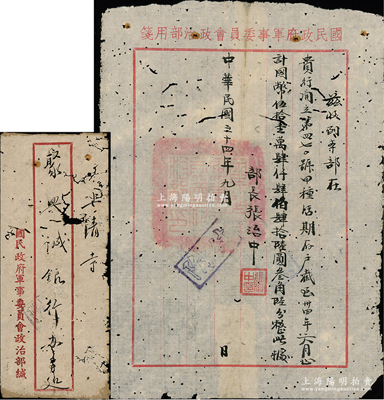 國民政府軍事委員會政治部用箋
茲收到本部在
貴行開立第四七〇號甲種活期存戶截至卅四年六月止
計國幣伍拾壹萬肆仟肆佰肆拾陸圓叁角陸分整此據
部長張治中
中華民國三十四年九月 日
聚興誠銀行
國民政府軍事委員會政治部緘
上海陽明拍賣